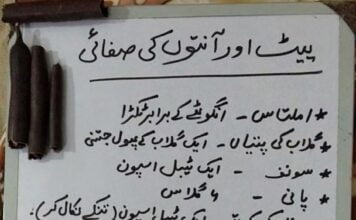 پیٹ اور آنتوں کی صفائی
* املتاس - انگوٹھے کے برابر ٹکڑا
* گلاب کی پتیاں - ایک گلاب کے پھول جتنی
* سونف - ایک ٹیبل اسپون
* پانی - ۲ گلاس
ایک ٹیبل اسپون (تنکے نکال کر)